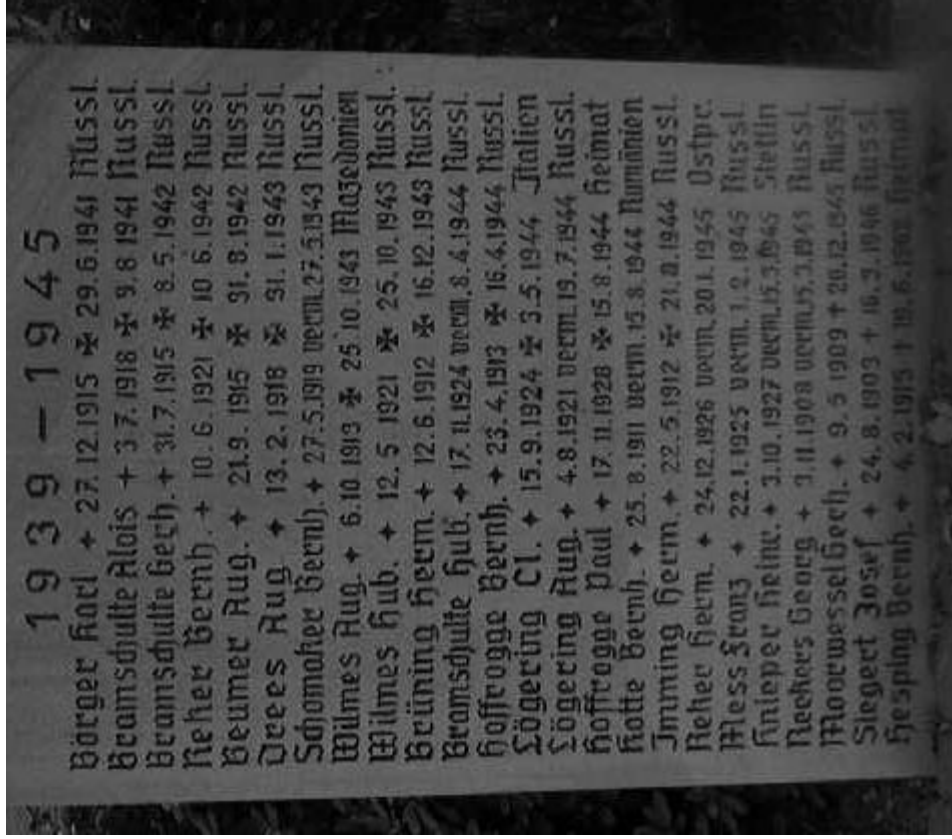 1939 – 1945
Börger Karl + 27.12.1915 ✠ 29.6.1941 Russl.
Bramschulte Alois + 3 7. 1918 ✠ 9. 8 1941 Russl.
Bramschulte Gerh. + 31.7.1915 ✠ 8. 5. 1942 Russl.
Reher Bernh. + 10. 6. 1921 ✠ 10 6. 1942 Russl.
Beumer Aug. + 21.9. 1915 ✠ 31. 8. 1942 Russl.
Drees Aug + 13. 2. 1918 ✠ 31. 1. 1943 Russl.
Schomaker Bernh. + 27.5.1919 verm. 27.5.1943 Russl.
Wilmes Aug + 6.10 1913 ✠ 25 10. 1943 Mazedonien
Wilmes Hub. + 12. 5 1921 ✠ 25. 10. 1943 Russl.
Brüning Herm. + 12. 6. 1912 ✠ 16.12. 1943 Russl.
Bramschulte Hub. + 17. 11.1924 verm. 8. 4.1944 Russl.
Hoffrogge Bernh. + 23. 4. 1913 ✠ 16. 4.1944 Russl.
Lögering Cl. + 15. 9. 1924 ✠ 3. 5. 1944 Italien
Lögering Aug. + 4. 8. 1921 verm. 19. 7.1944 Russl.
Hoffrogge Paul + 17. 11. 1928 ✠ 15. 8. 1944 Heimat
Kotte Bernh. + 25. 8. 1911 verm. 15. 8. 1944 Rumänien
Imming Herm. + 22. 5. 1912 ✠ 21. 8. 1944 Russl.
Reker Herm. + 24. 12. 1926 verm. 20. 1. 1945 Ostpr.
Mess Franz + 22. 1. 1925 verm. 1. 2. 1945 Russl
Knieper Heinr. + 3. 10. 1927 verm. 15. 3. 1945 Stettin
Rekers Georg + 3. 11. 1908 verm. 15. 3. 1945 Russl
Moorwessel Gerh. + 9. 5 1909 + 20. 12. 1945 Russl.
Siegert Josef + 24. 8. 1903 + 16. 3. 1946 Russl
Hesping Bernh. + 4. 2. 1915 + 19. 6. Heimat